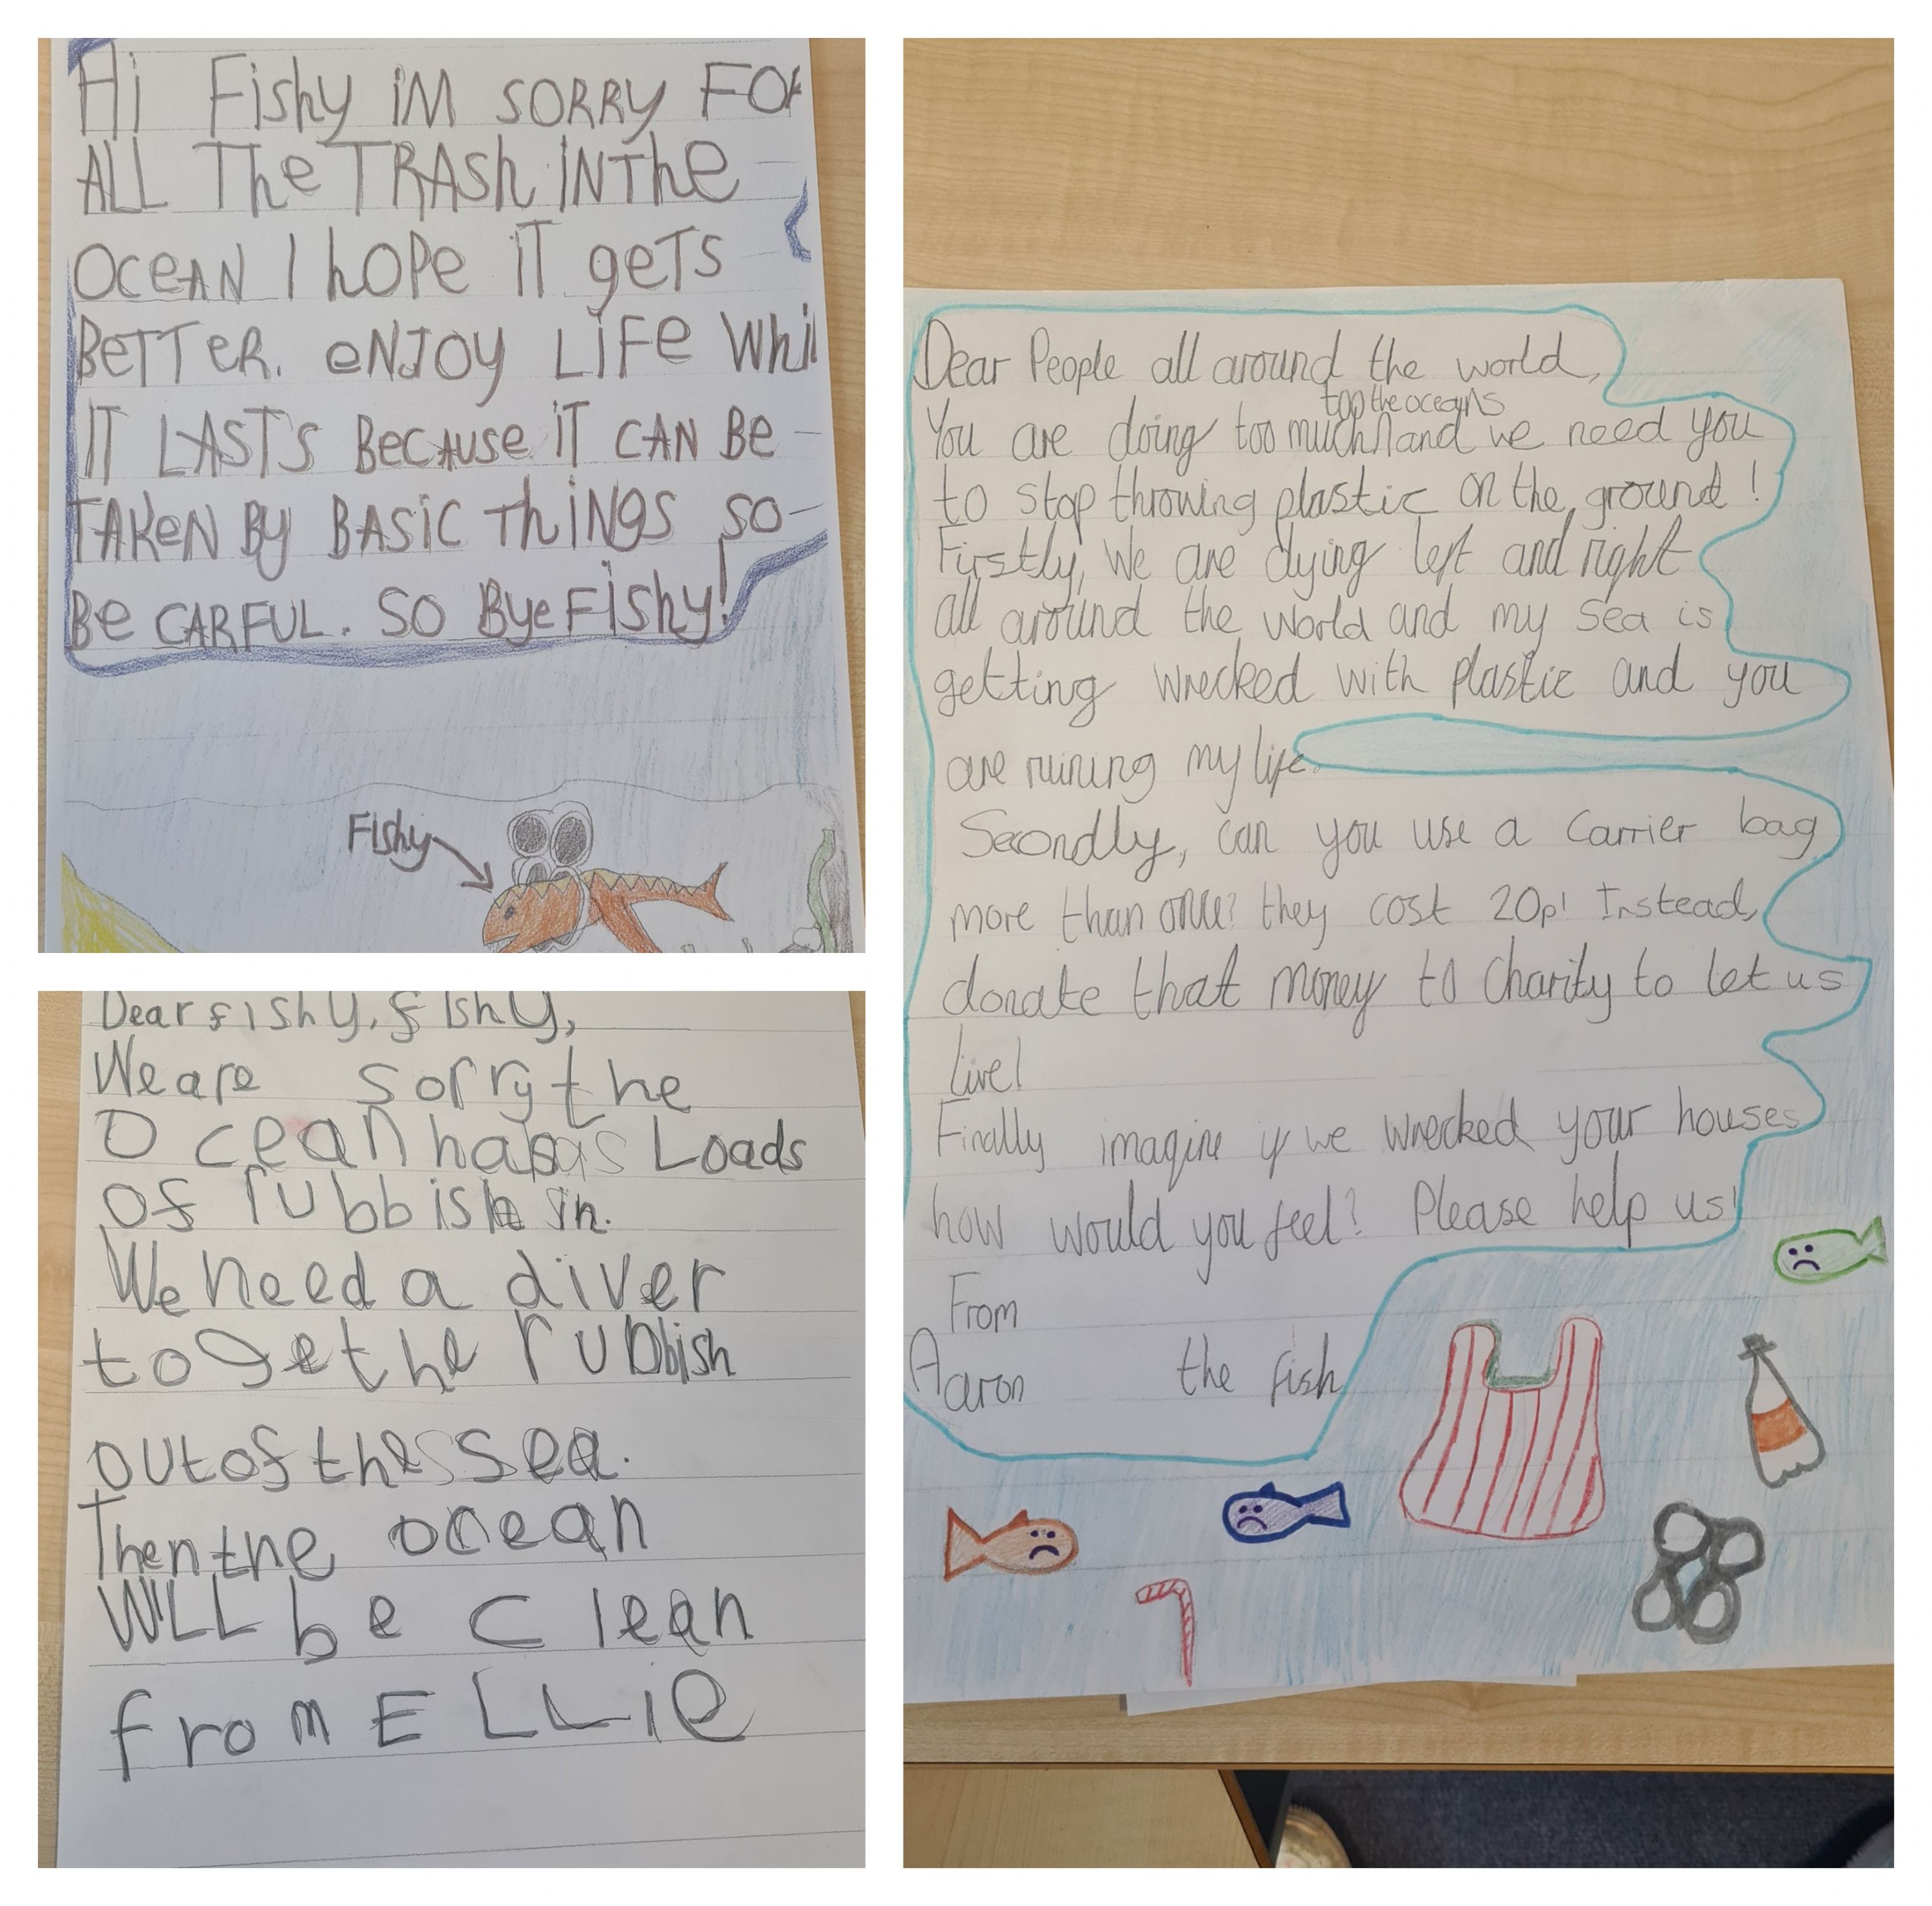 Hi Fishy iM SORRY FOR
ALL The TRASh iN The
OCeAN I hOPe iT geTS
BeTTeR. eNJOy LiFe Whil
IT LASTS BeCAUSe iT CAN Be
TAKeN By BASiC ThiNgS SO
Be CARFUL. SO Bye Fishy!
Fishy
Dear fishy, fishy,
We are sorry the
Ocean has Loads
of rubbish in.
We need a diver
to get the rubbish
out of the sea.
Then the ocean
WiLL be clean
from ELLie
Dear People all around the world,
to the oceans
You are doing too much and we need you
to stop throwing plastic on the ground!
Firstly, We are dying left and right
all around the world and my sea is
getting wrecked with plastic and you
are ruining my life.
Secondly, can you use a carrier bag
more than once? they cost 20p! Instead,
donate that money to charity to let us
live!
Finally imagine if we wrecked your houses
how would you feel? Please help us!
From
Aaron the fish